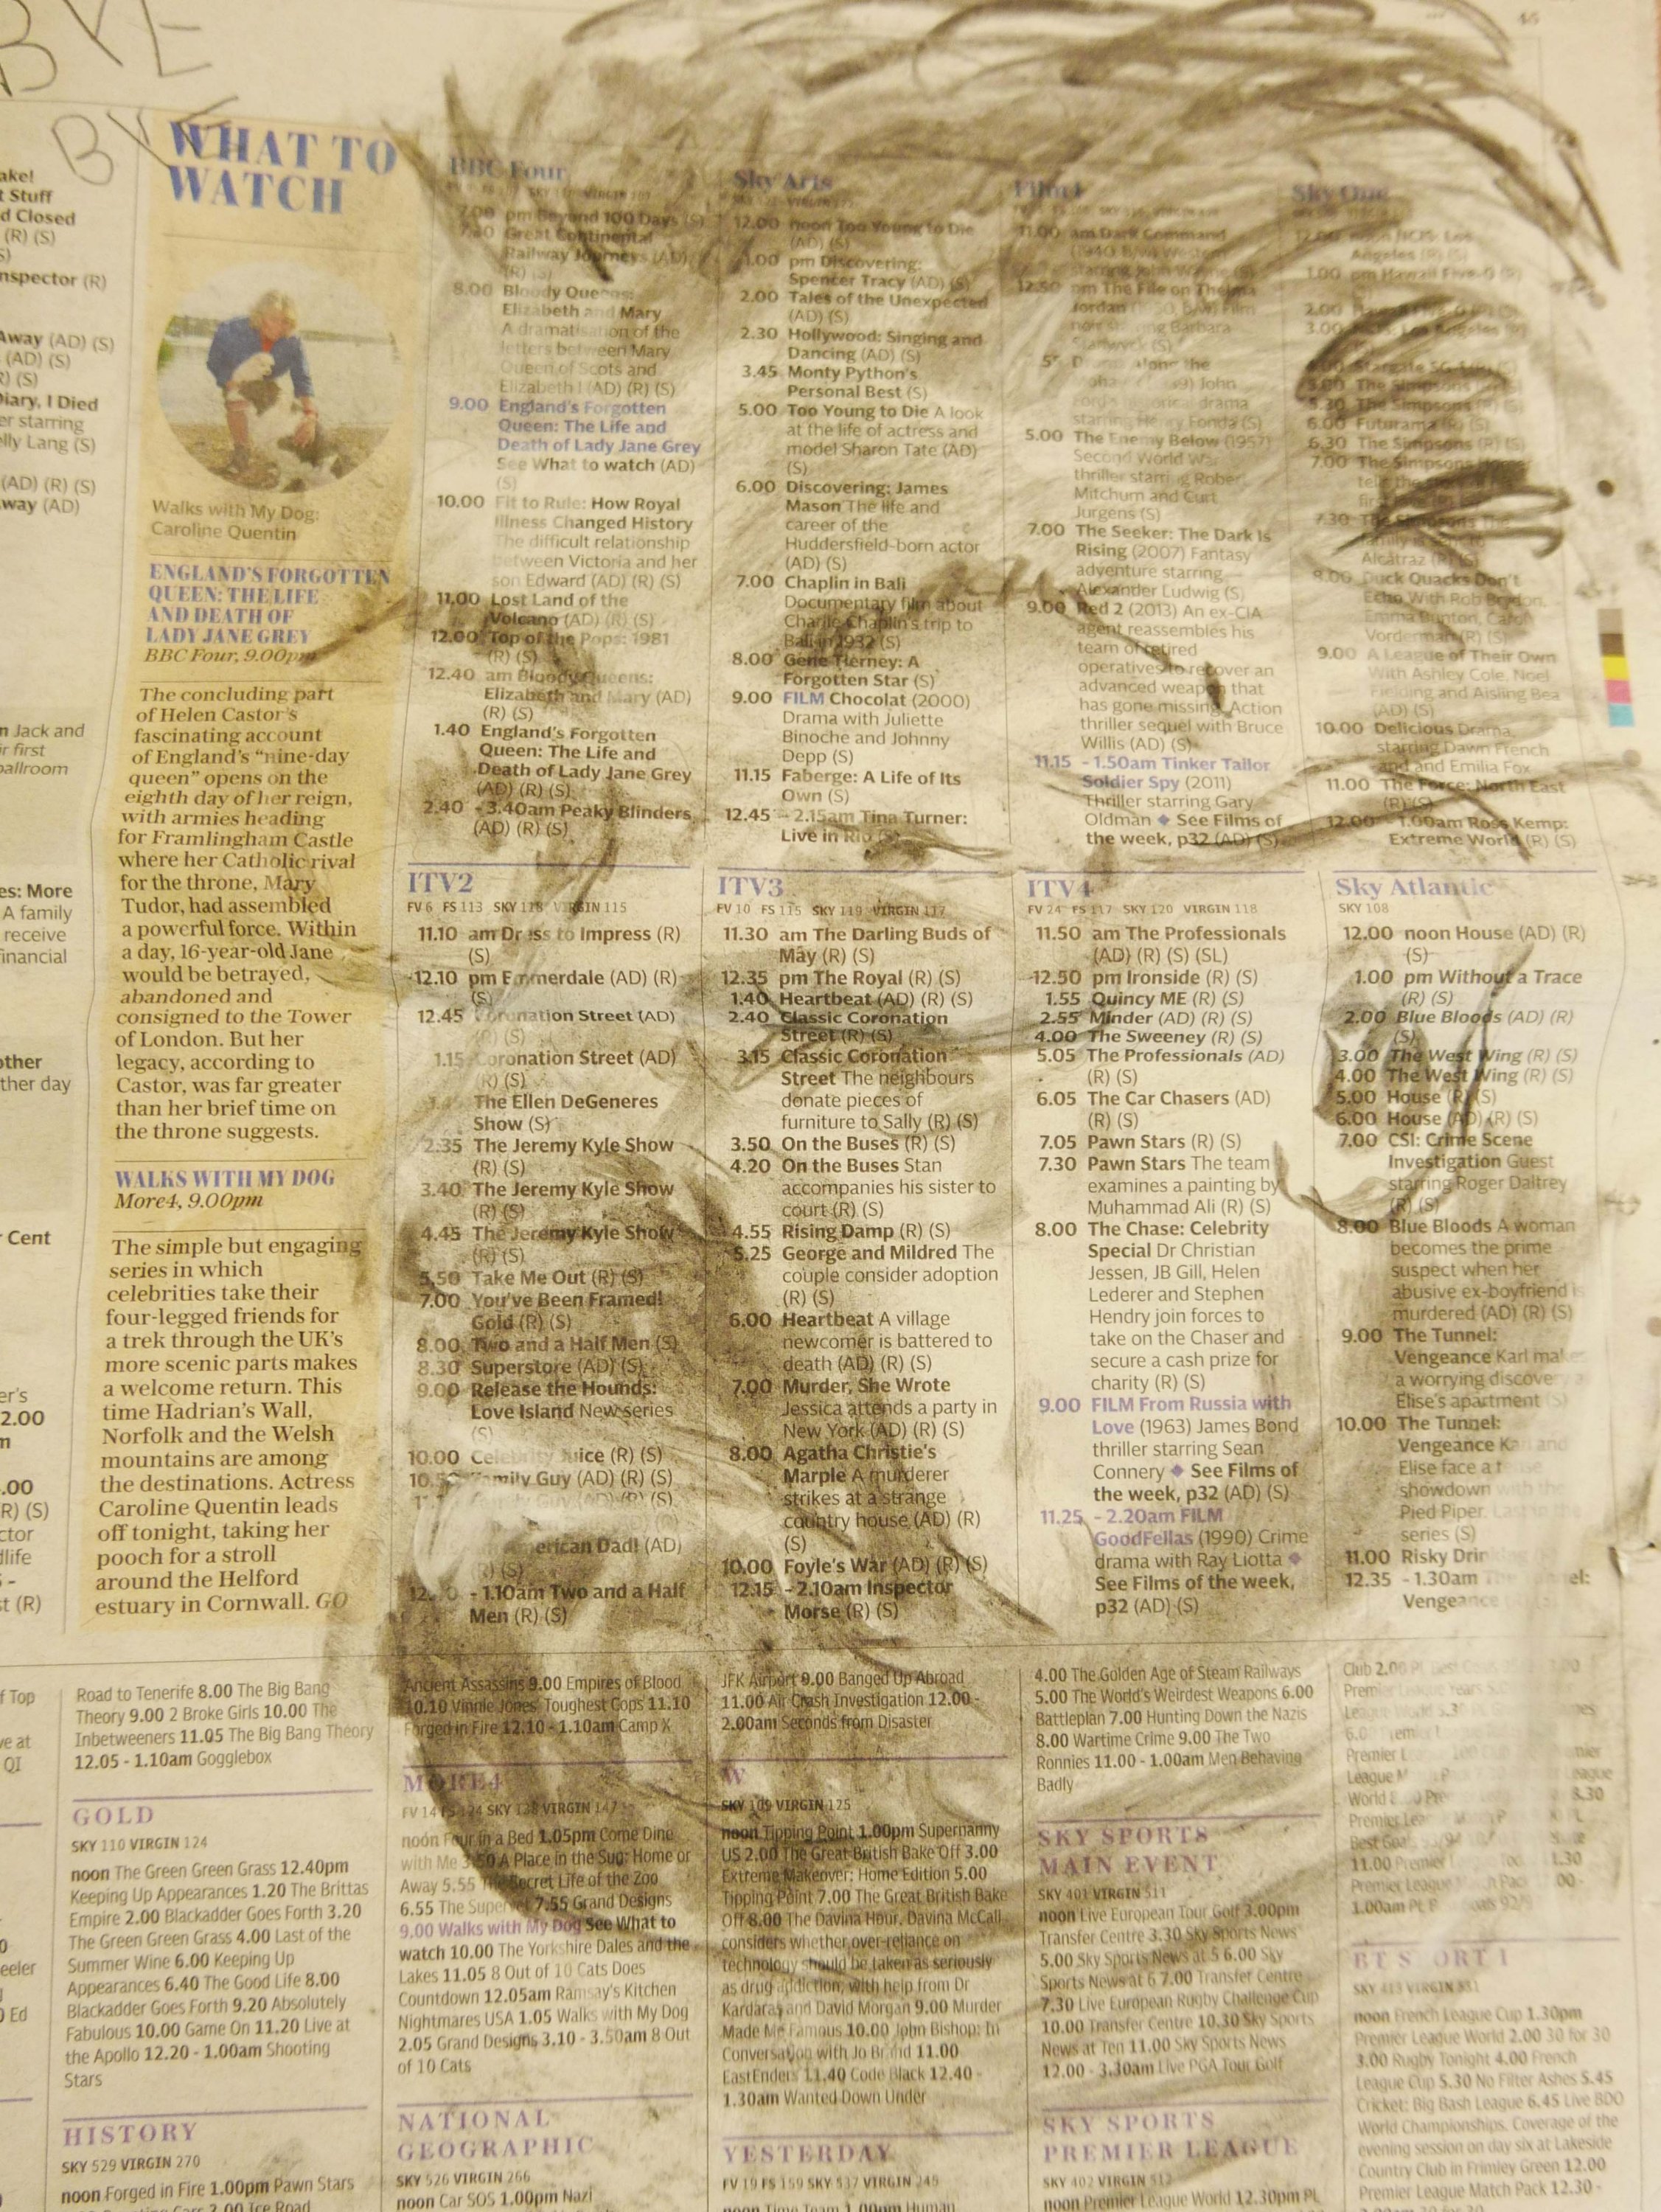 BYE
BYE
WHAT TO
WATCH
Walks with My Dog:
Caroline Quentin
ENGLAND'S FORGOTTEN
QUEEN: THE LIFE
AND DEATH OF
LADY JANE GREY
BBC Four, 9.00pm
The concluding part
of Helen Castor's
fascinating account
of England's “nine-day
queen” opens on the
eighth day of her reign,
with armies heading
for Framlingham Castle
where her Catholic rival
for the throne, Mary
Tudor, had assembled
a powerful force. Within
a day, 16-year-old Jane
would be betrayed,
abandoned and
consigned to the Tower
of London. But her
legacy, according to
Castor, was far greater
than her brief time on
the throne suggests.
WALKS WITH MY DOG
More4, 9.00pm
The simple but engaging
series in which
celebrities take their
four-legged friends for
a trek through the UK's
more scenic parts makes
a welcome return. This
time Hadrian's Wall,
Norfolk and the Welsh
mountains are among
the destinations. Actress
Caroline Quentin leads
off tonight, taking her
pooch for a stroll
around the Helford
estuary in Cornwall. GO
BBC Four
7.00 pm Beyond 100 Days (S)
Great Continental
Railway Journeys (AD)
(R) (S)
8.00 Bloody Queens:
Elizabeth and Mary
A dramatisation of the
letters between Mary
Queen of Scots and
Elizabeth I (AD) (R) (S)
9.00 England's Forgotten
Queen: The Life and
Death of Lady Jane Grey
See What to watch (AD)
(S)
10.00 Fit to Rule: How Royal
Illness Changed History
The difficult relationship
between Victoria and her
son Edward (AD) (R) (S)
11.00 Lost Land of the
Volcano (AD) (R) (S)
12.00 Top of the Pops: 1981
(R) (S)
12.40 am Bloody Queens:
Elizabeth and Mary (AD)
(R) (S)
1.40 England's Forgotten
Queen: The Life and
Death of Lady Jane Grey
(AD) (R) (S)
2.40 - 3.40am Peaky Blinders
(AD) (R) (S)
Sky Arts
12.00 noon Too Young to Die
(AD) (S)
1.00 pm Discovering:
Spencer Tracy (AD) (S)
2.00 Tales of the Unexpected
(AD) (S)
2.30 Hollywood: Singing and
Dancing (AD) (S)
3.45 Monty Python's
Personal Best (S)
5.00 Too Young to Die A look
at the life of actress and
model Sharon Tate (AD)
(S)
6.00 Discovering: James
Mason The life and
career of the
Huddersfield-born actor
(AD) (S)
7.00 Chaplin in Bali
Documentary film about
Charlie Chaplin's trip to
Bali in 1932 (S)
8.00 Gene Tierney: A
Forgotten Star (S)
9.00 FILM Chocolat (2000)
Drama with Juliette
Binoche and Johnny
Depp (S)
11.15 Faberge: A Life of Its
Own (S)
12.45 - 2.15am Tina Turner:
Live in Rio (S)
Film4
11.00 am Dark Command
(1940, B/W) Western
starring John Wayne (S)
12.50 pm The File on Thelma
Jordan
starring Barbara
Stanwyck (S)
along the
John
Ford's historical drama
starring Henry Fonda (S)
5.00 The Enemy Below (1957)
Second World War
thriller starring Robert
Mitchum and Curt
Jurgens (S)
7.00 The Seeker: The Dark Is
Rising (2007) Fantasy
adventure starring
Alexander Ludwig (S)
9.00 Red 2 (2013) An ex-CIA
agent reassembles his
team of retired
operatives to recover an
advanced weapon that
has gone missing. Action
thriller sequel with Bruce
Willis (AD) (S)
11.15 - 1.50am Tinker Tailor
Soldier Spy (2011)
Thriller starring Gary
Oldman ◆ See Films of
the week, p32 (AD) (S)
Sky One
12.00 noon NCIS: Los
Angeles (R) (S)
1.00 pm Hawaii Five-0 (R)
2.00
3.00 NCIS: Los Angeles (R)
Stargate SG-1 (R) (S)
5.00 The Simpsons
5.30 The Simpsons (R) (S)
6.00 Futurama (R) (S)
6.30 The Simpsons (R) (S)
7.00 The Simpsons
7.30 The Simpsons The
family is
Alcatraz (R) (S)
8.00 Duck Quacks Don't
Echo With Rob Brydon,
Emma Bunton, Carol
Vorderman (R) (S)
9.00 A League of Their Own
With Ashley Cole, Noel
Fielding and Aisling Bea
(AD) (S)
10.00 Delicious Drama,
starring Dawn French
and and Emilia Fox
11.00 The Force: North East
(R) (S)
12.00 - 1.00am Ross Kemp:
Extreme World (R) (S)
ITV2
FV 6 FS 113 SKY 118 VIRGIN 115
11.10 am Dress to Impress (R)
(S)
12.10 pm Emmerdale (AD) (R)
(S)
12.45 Coronation Street (AD)
(R) (S)
1.15 Coronation Street (AD)
(R) (S)
The Ellen DeGeneres
Show (S)
2.35 The Jeremy Kyle Show
(R) (S)
3.40 The Jeremy Kyle Show
(R) (S)
4.45 The Jeremy Kyle Show
(R) (S)
5.50 Take Me Out (R) (S)
7.00 You've Been Framed!
Gold (R) (S)
8.00 Two and a Half Men (S)
8.30 Superstore (AD) (S)
9.00 Release the Hounds:
Love Island New series
(S)
10.00 Celebrity Juice (R) (S)
Family Guy (AD) (R) (S)
Family Guy (AD) (R) (S)
American Dad! (AD)
(R) (S)
- 1.10am Two and a Half
Men (R) (S)
ITV3
FV 10 FS 115 SKY 119 VIRGIN 117
11.30 am The Darling Buds of
May (R) (S)
12.35 pm The Royal (R) (S)
1.40 Heartbeat (AD) (R) (S)
2.40 Classic Coronation
Street (R) (S)
3.15 Classic Coronation
Street The neighbours
donate pieces of
furniture to Sally (R) (S)
3.50 On the Buses (R) (S)
4.20 On the Buses Stan
accompanies his sister to
court (R) (S)
4.55 Rising Damp (R) (S)
5.25 George and Mildred The
couple consider adoption
(R) (S)
6.00 Heartbeat A village
newcomer is battered to
death (AD) (R) (S)
7.00 Murder, She Wrote
Jessica attends a party in
New York (AD) (R) (S)
8.00 Agatha Christie's
Marple A murderer
strikes at a strange
country house (AD) (R)
(S)
10.00 Foyle's War (AD) (R) (S)
12.15 - 2.10am Inspector
Morse (R) (S)
ITV4
FV 24 FS 117 SKY 120 VIRGIN 118
11.50 am The Professionals
(AD) (R) (S) (SL)
12.50 pm Ironside (R) (S)
1.55 Quincy ME (R) (S)
2.55 Minder (AD) (R) (S)
4.00 The Sweeney (R) (S)
5.05 The Professionals (AD)
(R) (S)
6.05 The Car Chasers (AD)
(R) (S)
7.05 Pawn Stars (R) (S)
7.30 Pawn Stars The team
examines a painting by
Muhammad Ali (R) (S)
8.00 The Chase: Celebrity
Special Dr Christian
Jessen, JB Gill, Helen
Lederer and Stephen
Hendry join forces to
take on the Chaser and
secure a cash prize for
charity (R) (S)
9.00 FILM From Russia with
Love (1963) James Bond
thriller starring Sean
Connery ◆ See Films of
the week, p32 (AD) (S)
11.25 - 2.20am FILM
GoodFellas (1990) Crime
drama with Ray Liotta ◆
See Films of the week,
p32 (AD) (S)
Sky Atlantic
SKY 108
12.00 noon House (AD) (R)
(S)
1.00 pm Without a Trace
(R) (S)
2.00 Blue Bloods (AD) (R)
(S)
3.00 The West Wing (R) (S)
4.00 The West Wing (R) (S)
5.00 House (R) (S)
6.00 House (AD) (R) (S)
7.00 CSI: Crime Scene
Investigation Guest
starring Roger Daltrey
(R) (S)
8.00 Blue Bloods A woman
becomes the prime
suspect when her
abusive ex-boyfriend is
murdered (AD) (R) (S)
9.00 The Tunnel:
Vengeance Karl
a worrying
Elise's apartment (S)
10.00 The Tunnel:
Vengeance
Elise face a
showdown with the
Pied Piper.
series (S)
11.00 Risky
12.35 - 1.30am
Vengeance
Road to Tenerife 8.00 The Big Bang
Theory 9.00 2 Broke Girls 10.00 The
Inbetweeners 11.05 The Big Bang Theory
12.05 - 1.10am Gogglebox
GOLD
SKY 110 VIRGIN 124
noon The Green Green Grass 12.40pm
Keeping Up Appearances 1.20 The Brittas
Empire 2.00 Blackadder Goes Forth 3.20
The Green Green Grass 4.00 Last of the
Summer Wine 6.00 Keeping Up
Appearances 6.40 The Good Life 8.00
Blackadder Goes Forth 9.20 Absolutely
Fabulous 10.00 Game On 11.20 Live at
the Apollo 12.20 - 1.00am Shooting
Stars
HISTORY
SKY 529 VIRGIN 270
noon Forged in Fire 1.00pm Pawn Stars
Ancient Assassins 9.00 Empires of Blood
10.10 Vinnie Jones' Toughest Cops 11.10
Forged in Fire 12.10 - 1.10am Camp X
MORE4
FV 14 FS 124 SKY 138 VIRGIN 147
noon Four in a Bed 1.05pm Come Dine
with Me 3.50 A Place in the Sun: Home or
Away 5.55 The Secret Life of the Zoo
6.55 The Supervet 7.55 Grand Designs
9.00 Walks with My Dog See What to
watch 10.00 The Yorkshire Dales and the
Lakes 11.05 8 Out of 10 Cats Does
Countdown 12.05am Ramsay's Kitchen
Nightmares USA 1.05 Walks with My Dog
2.05 Grand Designs 3.10 - 3.50am 8 Out
of 10 Cats
NATIONAL
GEOGRAPHIC
SKY 526 VIRGIN 266
noon Car SOS 1.00pm Nazi
JFK Airport 9.00 Banged Up Abroad
11.00 Air Crash Investigation 12.00 -
2.00am Seconds from Disaster
W
SKY 109 VIRGIN 125
noon Tipping Point 1.00pm Supernanny
US 2.00 The Great British Bake Off 3.00
Extreme Makeover: Home Edition 5.00
Tipping Point 7.00 The Great British Bake
Off 8.00 The Davina Hour. Davina McCall
considers whether over-reliance on
technology should be taken as seriously
as drug addiction, with help from Dr
Kardaras and David Morgan 9.00 Murder
Made Me Famous 10.00 John Bishop: In
Conversation with Jo Brand 11.00
EastEnders 11.40 Code Black 12.40 -
1.30am Wanted Down Under
YESTERDAY
FV 19 FS 159 SKY 537 VIRGIN 245
noon Time Team 1.00pm Human
4.00 The Golden Age of Steam Railways
5.00 The World's Weirdest Weapons 6.00
Battleplan 7.00 Hunting Down the Nazis
8.00 Wartime Crime 9.00 The Two
Ronnies 11.00 - 1.00am Men Behaving
Badly
SKY SPORTS
MAIN EVENT
SKY 401 VIRGIN 511
noon Live European Tour Golf 3.00pm
Transfer Centre 3.30 Sky Sports News
5.00 Sky Sports News at 5 6.00 Sky
Sports News at 6 7.00 Transfer Centre
7.30 Live European Rugby Challenge Cup
10.00 Transfer Centre 10.30 Sky Sports
News at Ten 11.00 Sky Sports News
12.00 - 3.30am Live PGA Tour Golf
SKY SPORTS
PREMIER LEAGUE
SKY 402 VIRGIN 512
noon Premier League World 12.30pm PL
BT SPORT 1
SKY 413 VIRGIN 531
noon French League Cup 1.30pm
Premier League World 2.00 30 for 30
3.00 Rugby Tonight 4.00 French
League Cup 5.30 No Filter Ashes 5.45
Cricket: Big Bash League 6.45 Live BDO
World Championships. Coverage of the
evening session on day six at Lakeside
Country Club in Frimley Green 12.00
Premier League Match Pack 12.30 -